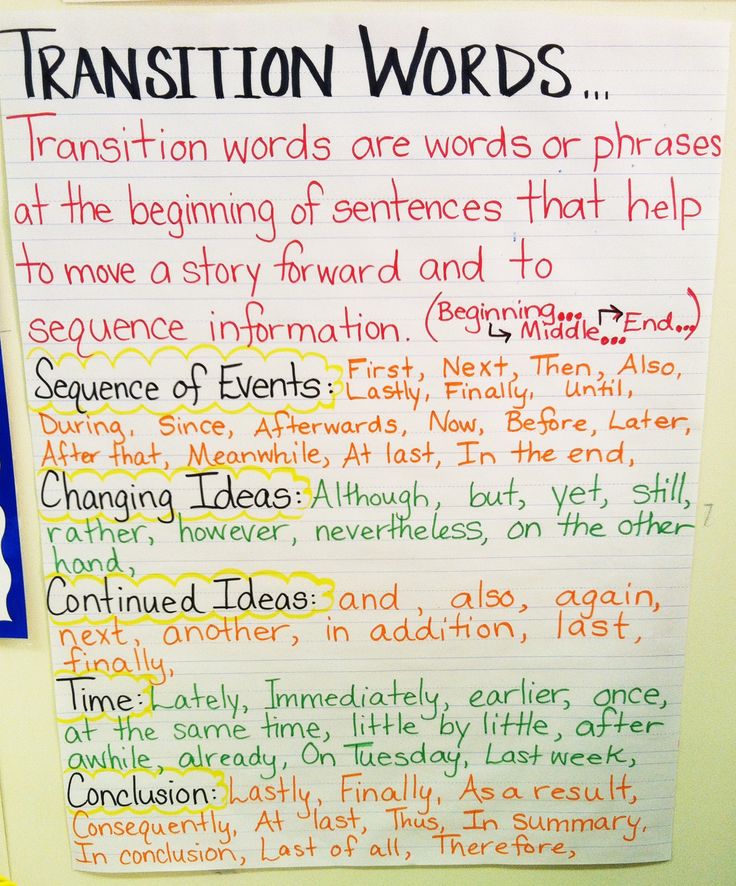 TRANSITION WORDS...
Transition words are words or phrases
at the beginning of sentences that help
to move a story forward and to
sequence information. (Beginning... ↳ Middle... ↱ End...)
Sequence of Events: First, Next, Then, Also,
Lastly, Finally, Until,
During, Since, Afterwards, Now, Before, Later,
After that, Meanwhile, At last, In the end,
Changing Ideas: Although, but, yet, still,
rather, however, nevertheless, on the other
hand,
Continued Ideas: and, also, again,
next, another, in addition, last,
finally,
Time: Lately, Immediately, earlier, once,
at the same time, little by little, after
awhile, already, On Tuesday, Last week,
Conclusion: Lastly, Finally, As a result,
Consequently, At last, Thus, In summary,
In conclusion, Last of all, Therefore,